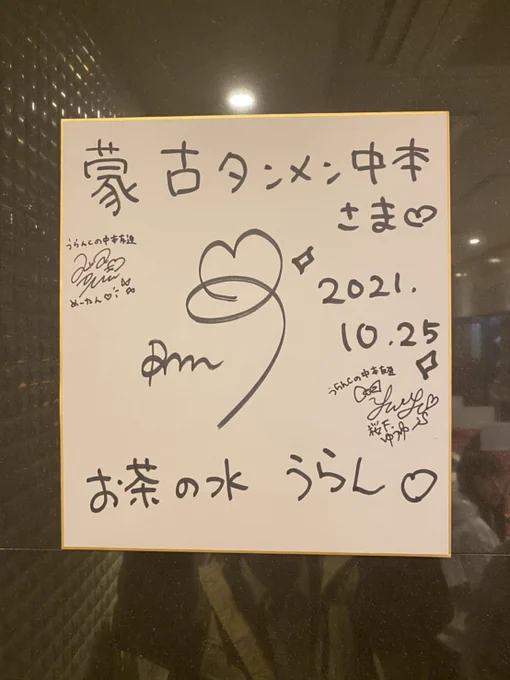 蒙古タンメン中本
さま♡
うらんCの中本友達
めーたん♡
2021.
10.25
うらんCの中本友達
桜下
ゆゆ
お茶の水 うらん♡